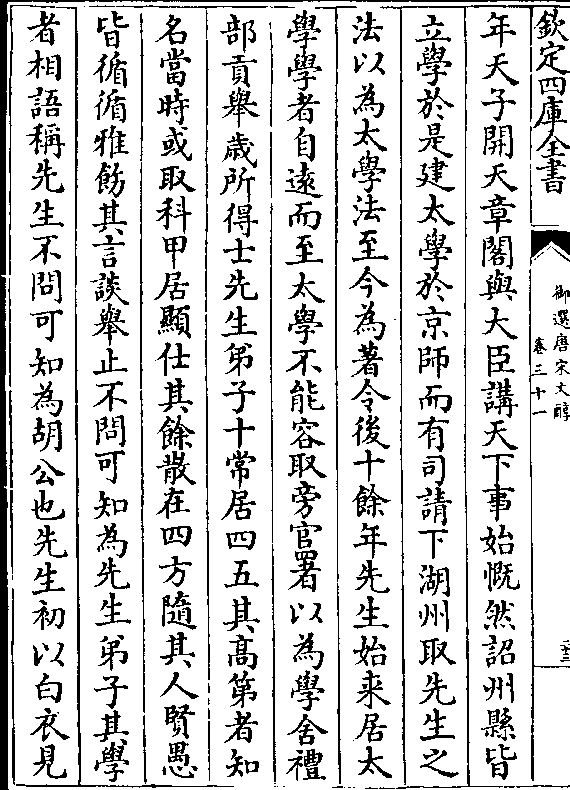 欽定四庫全書
御選唐宋文醇
卷三十一
年天子開天章閣與大臣講天下事始慨然詔州縣皆
立學於是建太學於京師而有司請下湖州取先生之
法以為太學法至今為著令後十餘年先生始来居太
學學者自遠而至太學不能容取旁官署以為學舍禮
部貢舉歳所得士先生弟子十常居四五其髙第者知
名當時或取科甲居顯仕其餘散在四方隨其人賢愚
皆循循雅飭其言談舉止不問可知為先生弟子其學
者相語稱先生不問可知為胡公也先生初以白衣見